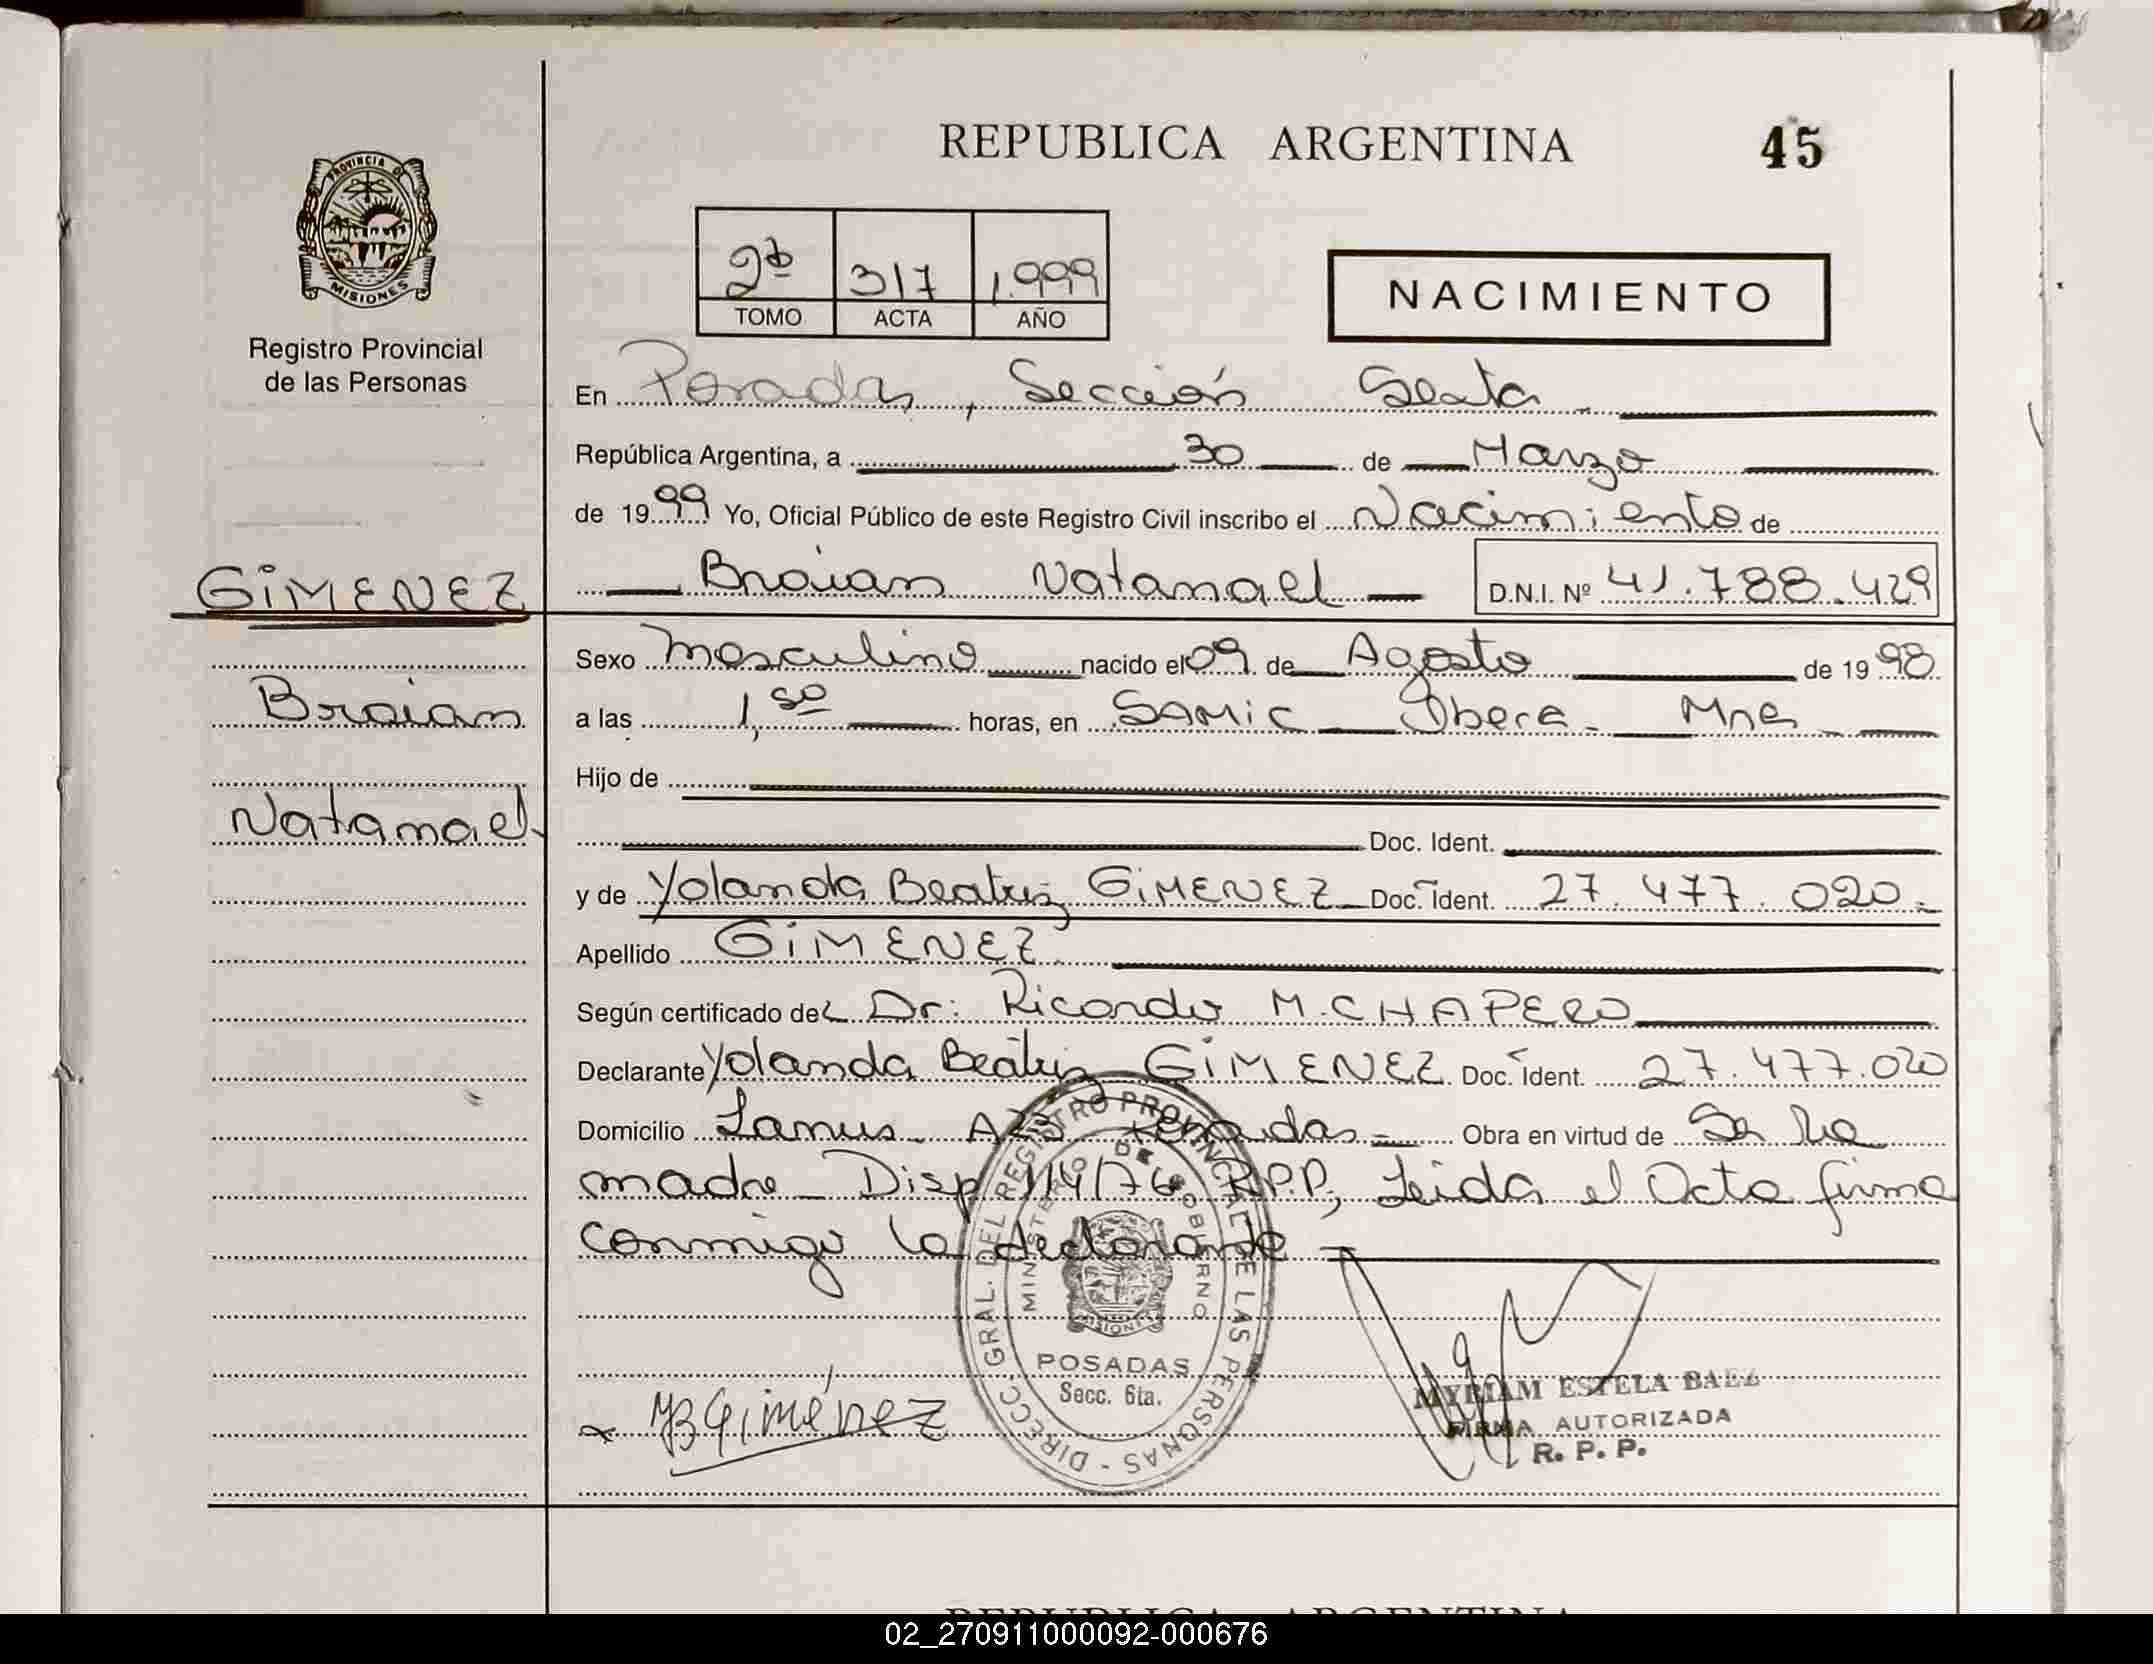 REPUBLICA ARGENTINA 45
PROVINCIA DE
MISIONES
Registro Provincial
de las Personas
2º 317 1.999
TOMO ACTA AÑO
NACIMIENTO
En Posadas, Sección Sexta
República Argentina, a 30 de Marzo
de 1999 Yo, Oficial Público de este Registro Civil inscribo el Nacimiento de
Braian Natanael D.N.I. Nº 41.788.429
GiMENEZ
Braian
Natanael
Sexo Masculino nacido el 09 de Agosto de 1998
a las 1,50 horas, en SAMIC Obera - Mnes
Hijo de
Doc. Ident.
y de Yolanda Beatriz GiMENEZ Doc. Ident. 27.477.020
Apellido GiMENEZ
Según certificado del Dr: Ricardo M. CHAPERO
Declarante Yolanda Beatriz GiMENEZ Doc. Ident. 27.477.020
Domicilio Lanus - Posadas Obra en virtud de Ser la
madre - Disp 114/76 R.P.P, Leida el Acta firma
conmigo la declarante
YBGiménez
DIRECC. GRAL. DEL REGISTRO PROVINCIAL DE LAS PERSONAS -
MINISTERIO DE GOBIERNO
MISIONES
POSADAS
Secc. 6ta.
MYRIAM ESTELA BAEZ
FIRMA AUTORIZADA
R. P. P.
REPUBLICA ARGENTINA
02_270911000092-000676